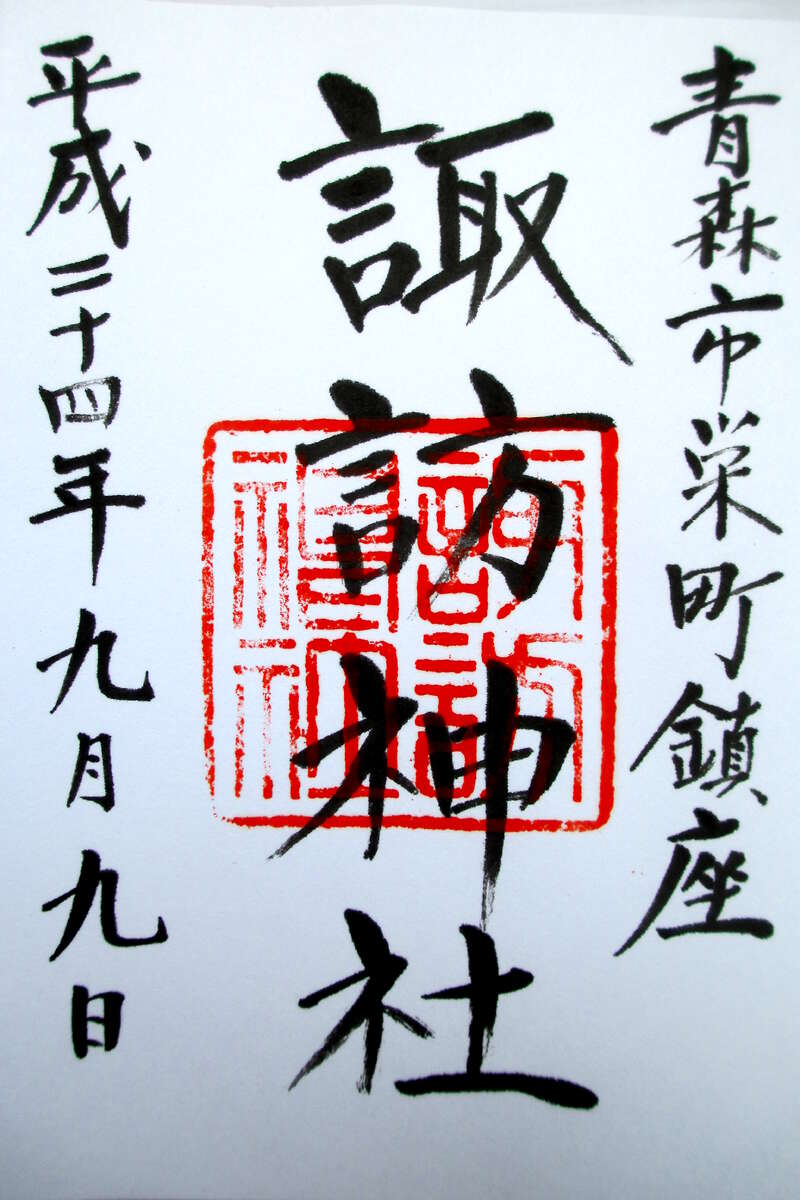 青森市栄町鎮座
諏訪神社
平成二十四年九月九日